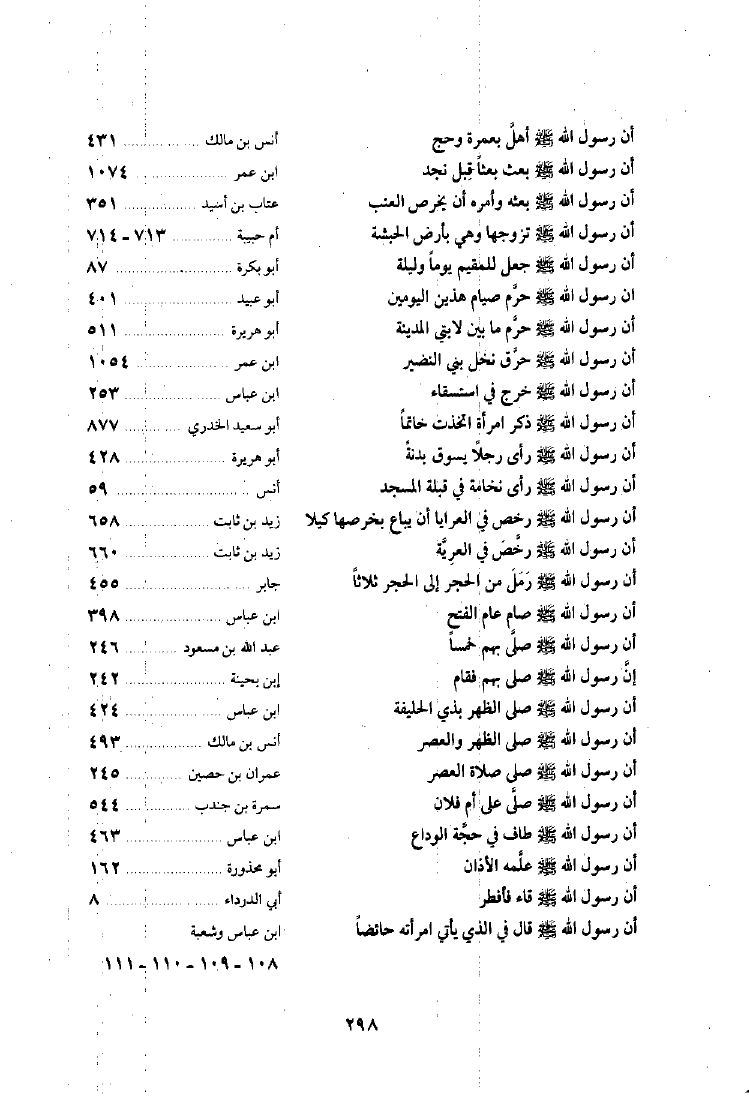 أن رسول الله ﷺ أهلَّ بعمرة وحج أنس بن مالك ........... ٤٣١
أن رسول الله ﷺ بعث بعثاً قِبل نجد ابن عمر ........... ١٠٧٤
أن رسول الله ﷺ بعثه وأمره أن يخرص العنب عتاب بن أسيد ........... ٣٥١
أن رسول الله ﷺ تزوجها وهي بأرض الحبشة أم حبيبة ........... ٧١٣-٧١٤
أن رسول الله ﷺ جعل للمقيم يوماً وليلة أبو بكرة ........... ٨٧
ان رسول الله ﷺ حرَّم صيام هذين اليومين أبو عبيد ........... ٤٠١
أن رسول الله ﷺ حرَّم ما بين لابتي المدينة أبو هريرة ........... ٥١١
أن رسول الله ﷺ حرَّق نخل بني النضير ابن عمر ........... ١٠٥٤
أن رسول الله ﷺ خرج في استسقاء ابن عباس ........... ٢٥٣
أن رسول الله ﷺ ذكر امرأة اتخذت خاتماً أبو سعيد الخدري ........... ٨٧٧
أن رسول الله ﷺ رأى رجلًا يسوق بدنةً أبو هريرة ........... ٤٢٨
أن رسول الله ﷺ رأى نخامة في قبلة المسجد أنس ........... ٥٩
أن رسول الله ﷺ رخص في العرايا أن يباع بخرصها كيلا زيد بن ثابت ........... ٦٥٨
أن رسول الله ﷺ رخَّصَ في العريَّة زيد بن ثابت ........... ٦٦٠
أن رسول الله ﷺ رَمَلَ من الحجر إلى الحجر ثلاثاً جابر ........... ٤٥٥
أن رسول الله ﷺ صام عام الفتح ابن عباس ........... ٣٩٨
أن رسول الله ﷺ صلَّى بهم خمساً عبد الله بن مسعود ........... ٢٤٦
إنَّ رسول الله ﷺ صلى بهم فقام إبن بحينة ........... ٢٤٢
أن رسول الله ﷺ صلى الظهر بذي الحليفة ابن عباس ........... ٤٢٤
أن رسول الله ﷺ صلى الظهر والعصر أنس بن مالك ........... ٤٩٣
أن رسول الله ﷺ صلى صلاة العصر عمران بن حصين ........... ٢٤٥
أن رسول الله ﷺ صلَّى على أم فلان سمرة بن جندب ........... ٥٤٤
أن رسول الله ﷺ طاف في حجَّة الوداع ابن عباس ........... ٤٦٣
أن رسول الله ﷺ علَّمه الأذان أبو محذورة ........... ١٦٢
أن رسول الله ﷺ قاء فأفطر أبي الدرداء ........... ٨
أن رسول الله ﷺ قال في الذي يأتي امرأته حائضاً ابن عباس وشعبة
١٠٨-١٠٩-١١٠-١١١
٢٩٨